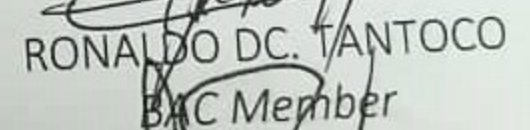 RONALDO DC. TANTOCO
BAC Member